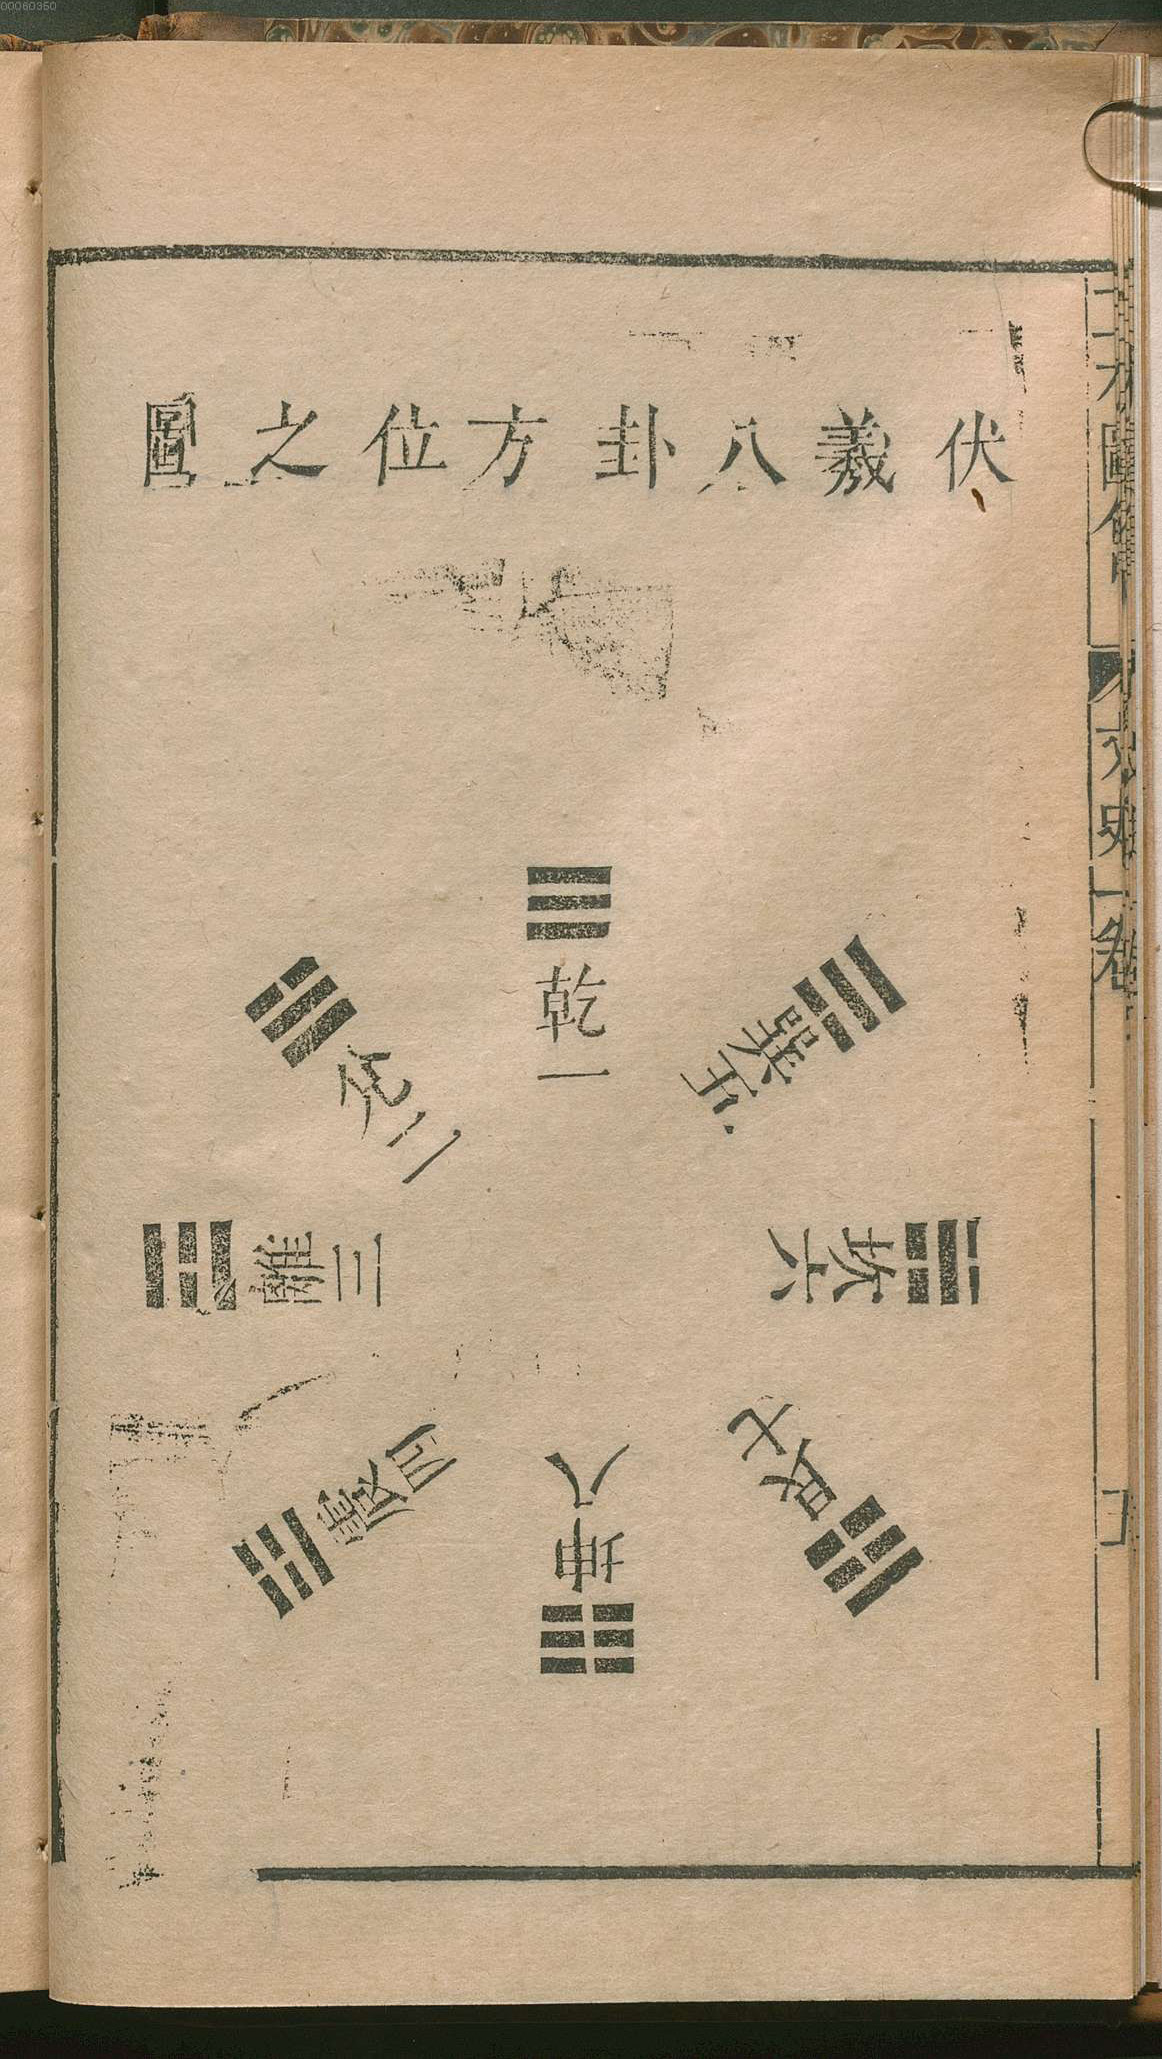 00060350
伏羲八卦方位之圖
乾一
兌二
離三
震四
巽五
坎六
艮七
坤八
三才圖會
文史一卷